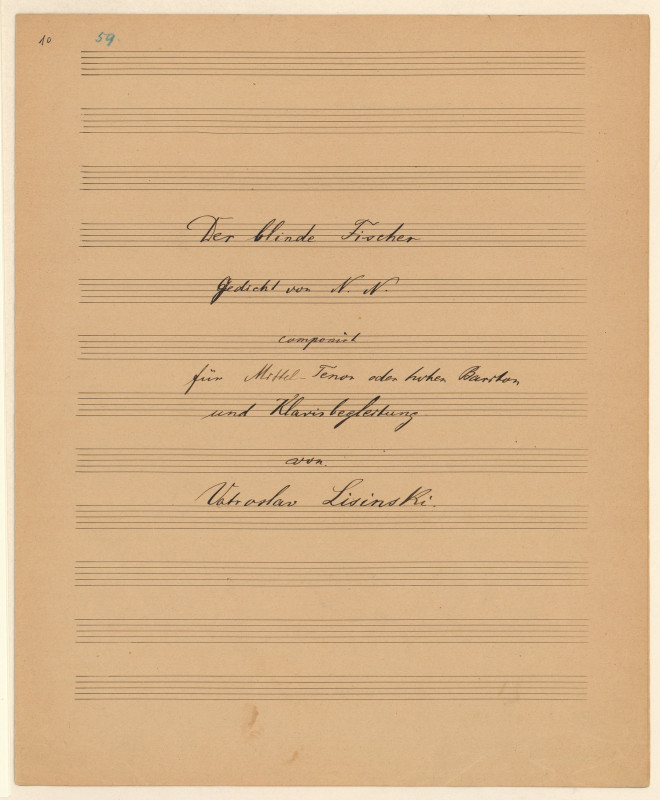 10 59.
Der blinde Fischer
Gedicht von N. N.
componirt
für Mittel-Tenor oder hohen Bariton
und Klavirbegleitung
von
Vatroslav Lisinski.